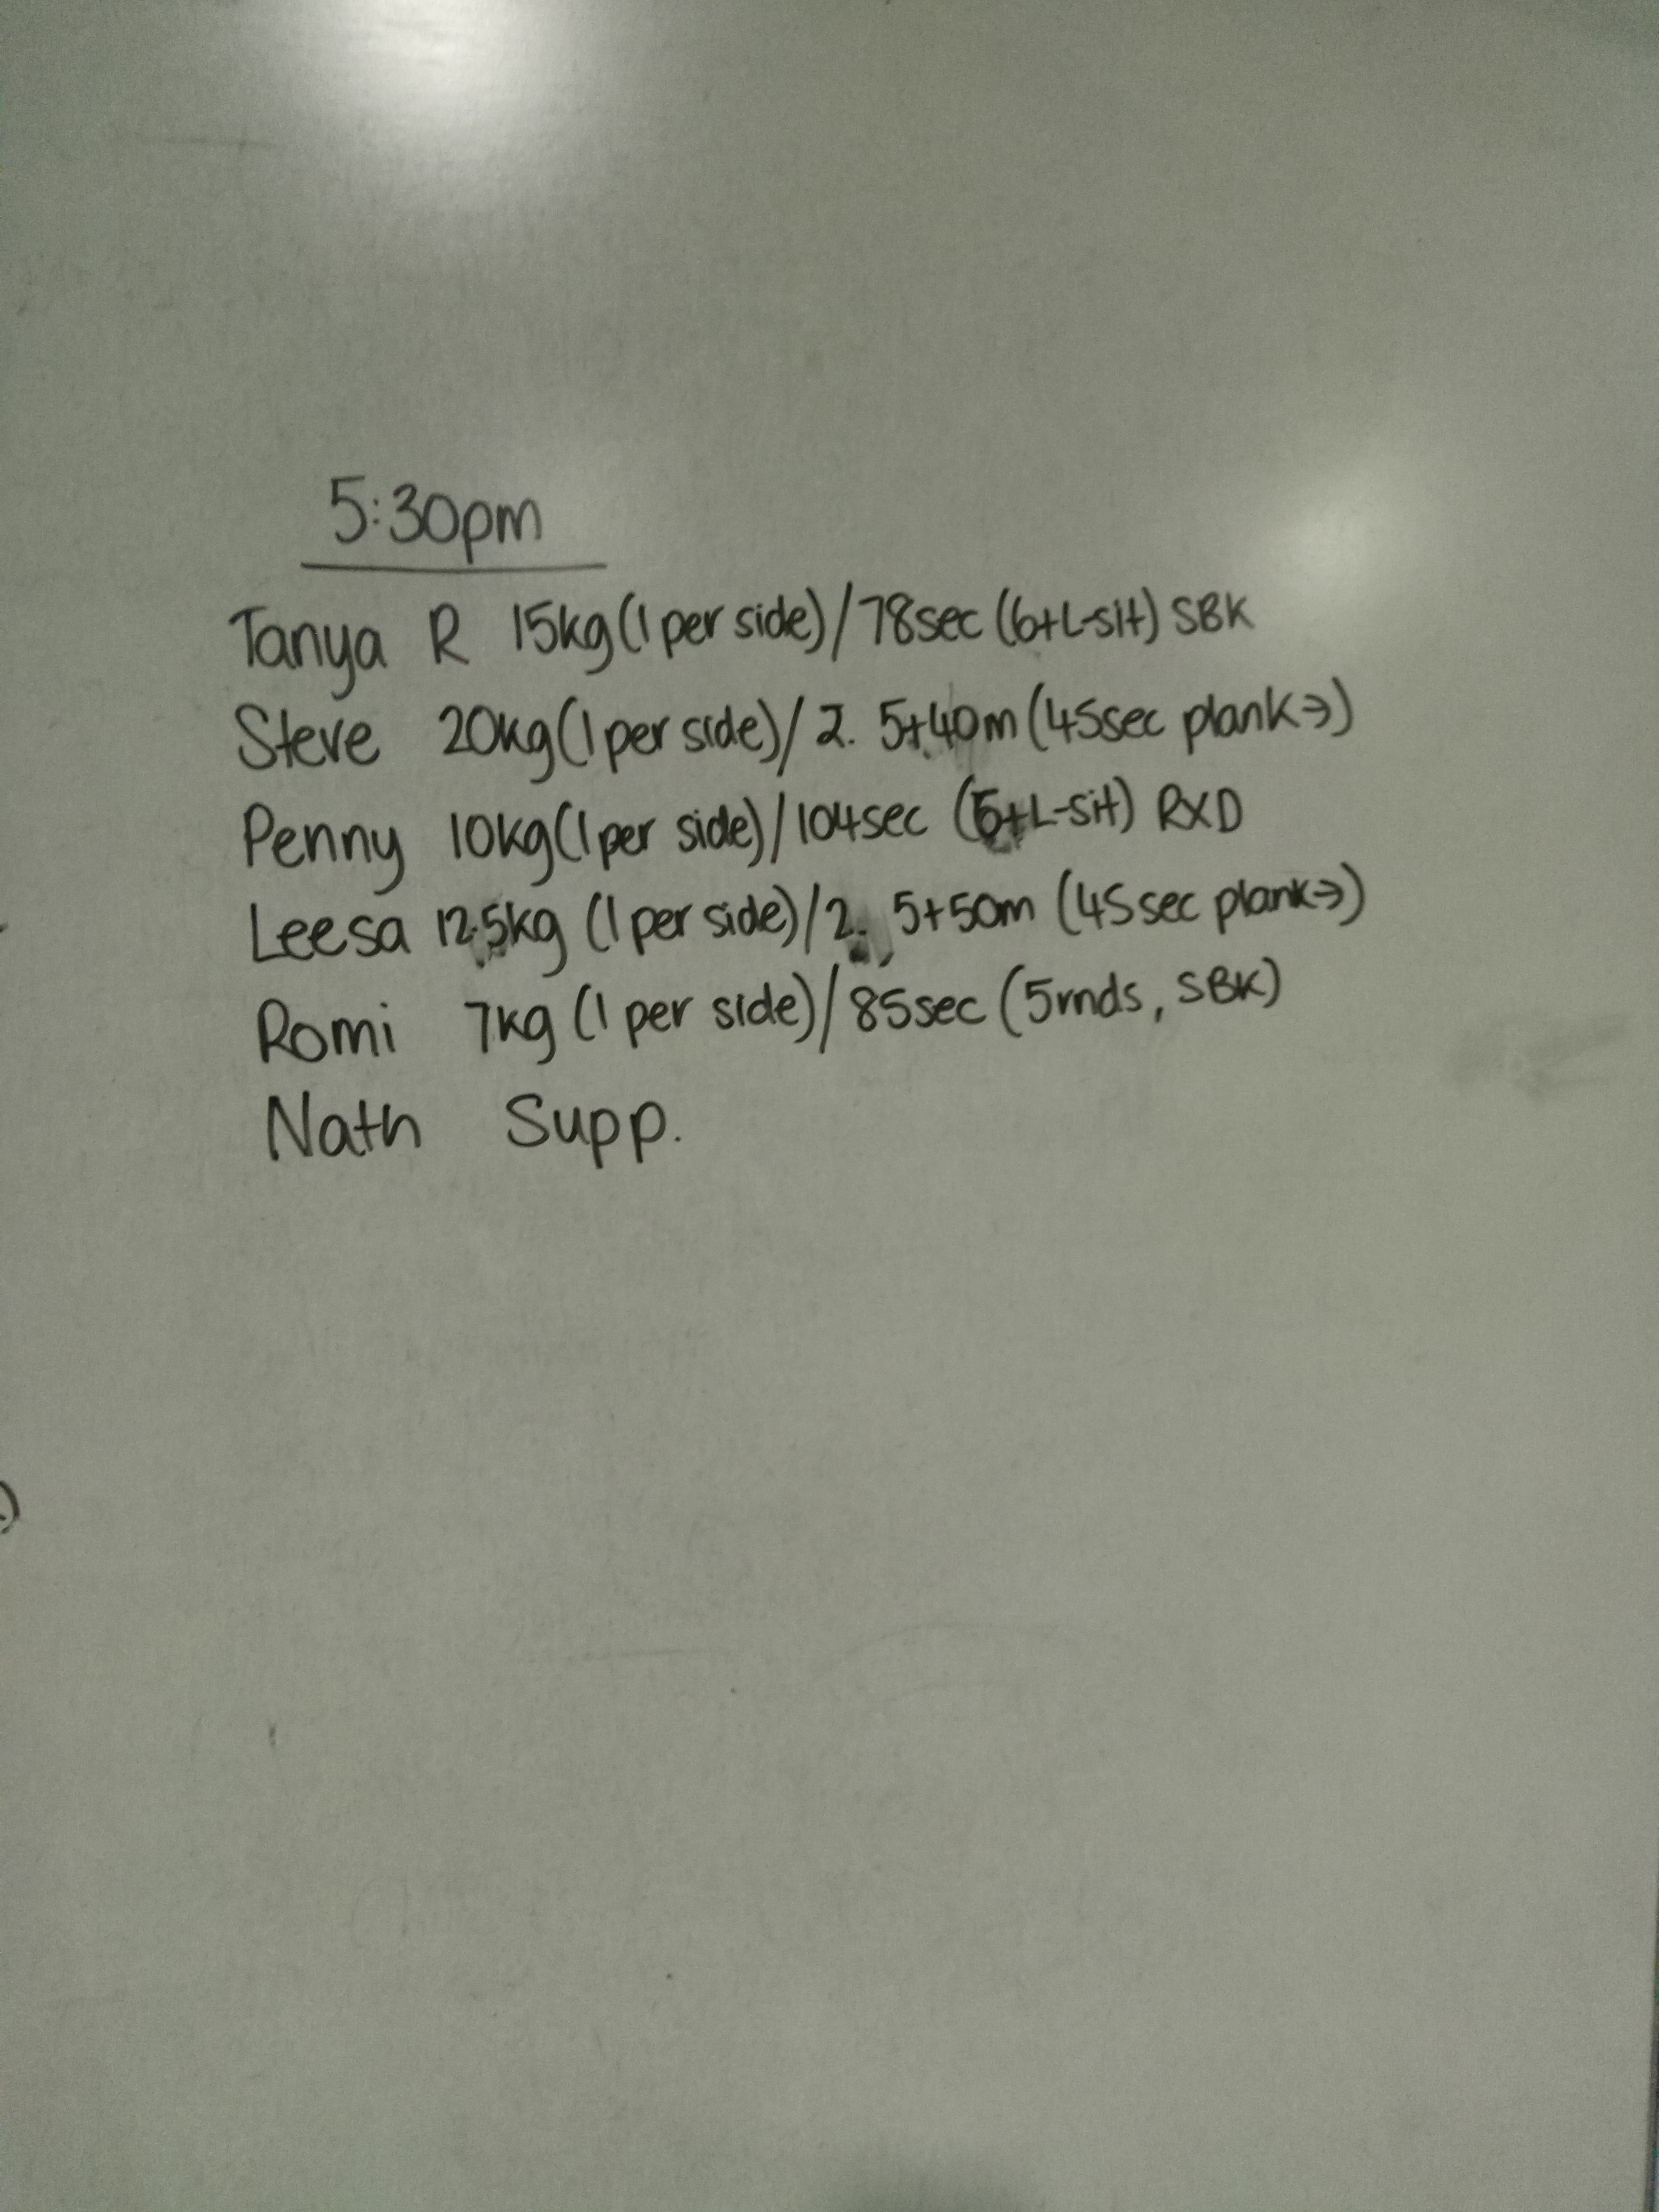 5:30pm
Tanya R 15kg (1 per side) / 78sec (6+L-sit) SBK
Steve 20kg (1 per side) / 2. 5+40m (45sec plank→)
Penny 10kg (1 per side) / 104sec (5+L-sit) RXD
Leesa 12.5kg (1 per side) / 2. 5+50m (45sec plank→)
Romi 7kg (1 per side) / 85sec (5rnds, SBK)
Nath Supp.